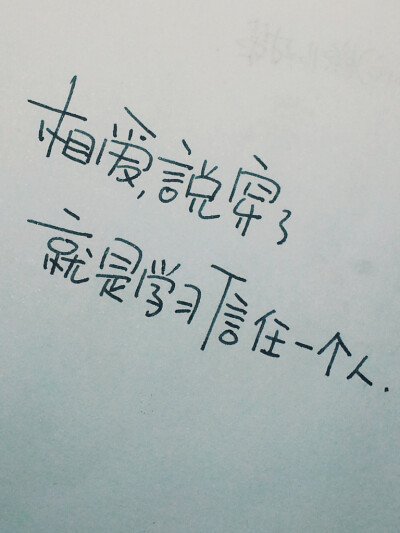 相爱,說穿了
就是学习信任一个人.